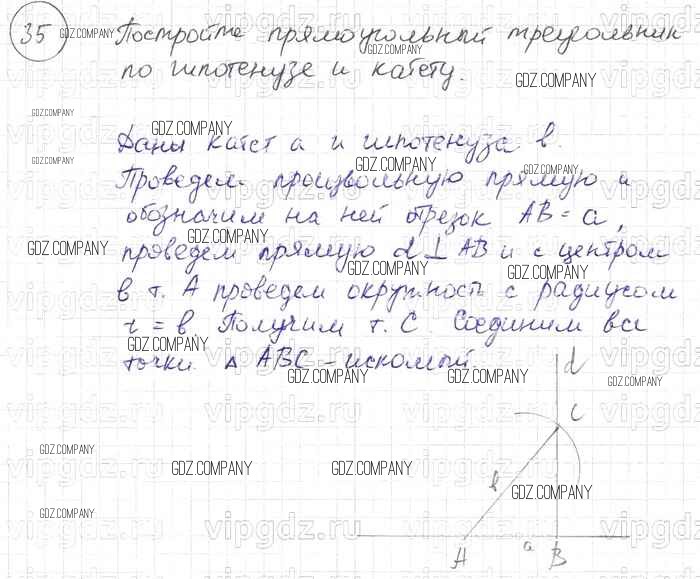 35 Постройте прямоугольный треугольник
по гипотенузе и катету.
Даны катет a и гипотенуза b.
Проведем произвольную прямую и
обозначим на ней отрезок AB = a,
проведем прямую d ⊥ AB и с центром
в т. A проведем окружность с радиусом
r = b Получим т. C. Соединим все
точки. △ ABC - искомый.
d
C
b
A a B
GDZ.COMPANY
vipgdz.ru